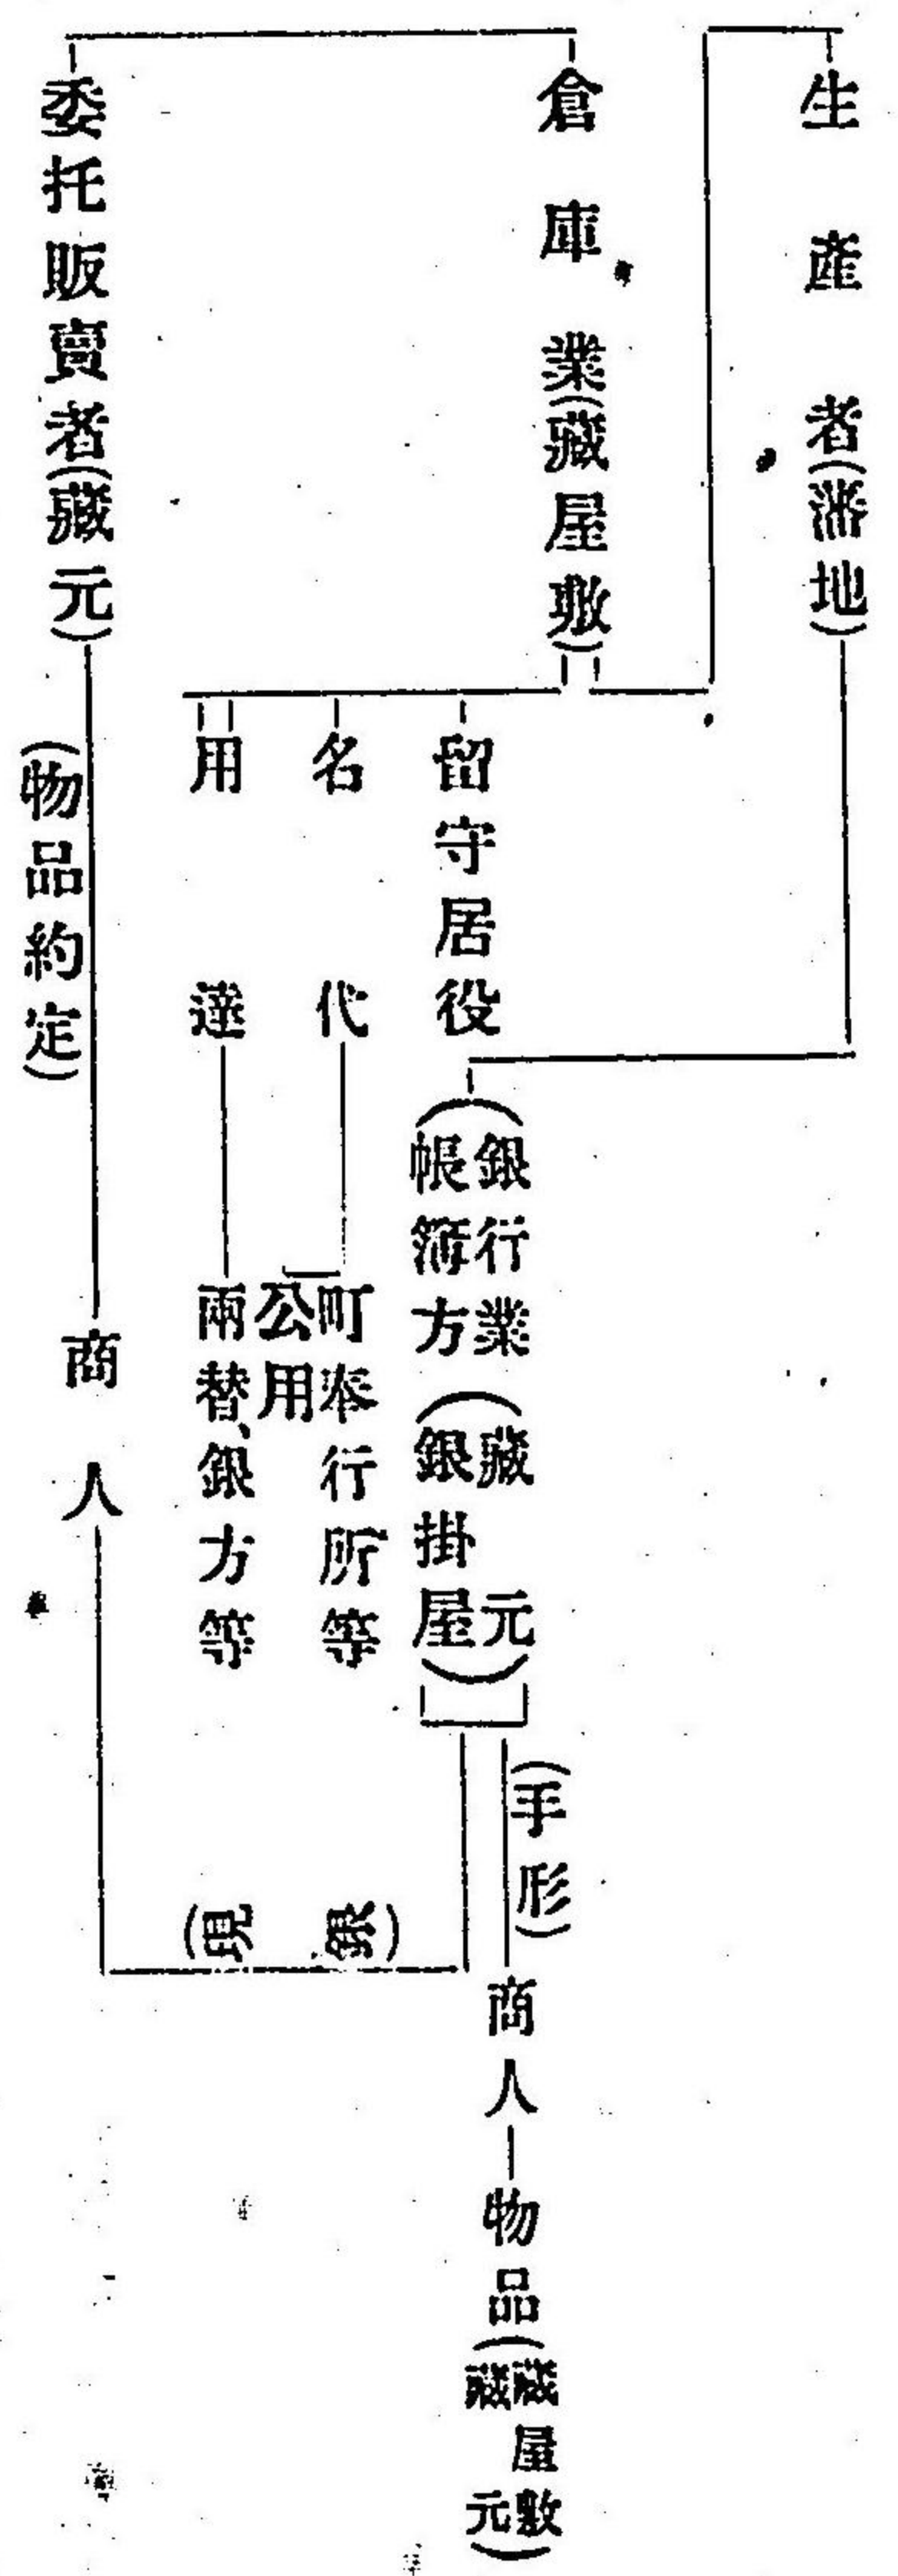 生產者(藩地)
倉庫業(藏屋敷)
留守居役
(銀行業(藏元
帳簿方(銀掛屋)
(手形)
商人
物品(藏屋敷
藏元)
名代
町奉行所等
公用
用達
兩替、銀方等
(現銀)
委托販賣者(藏元)
(物品約定)
商人